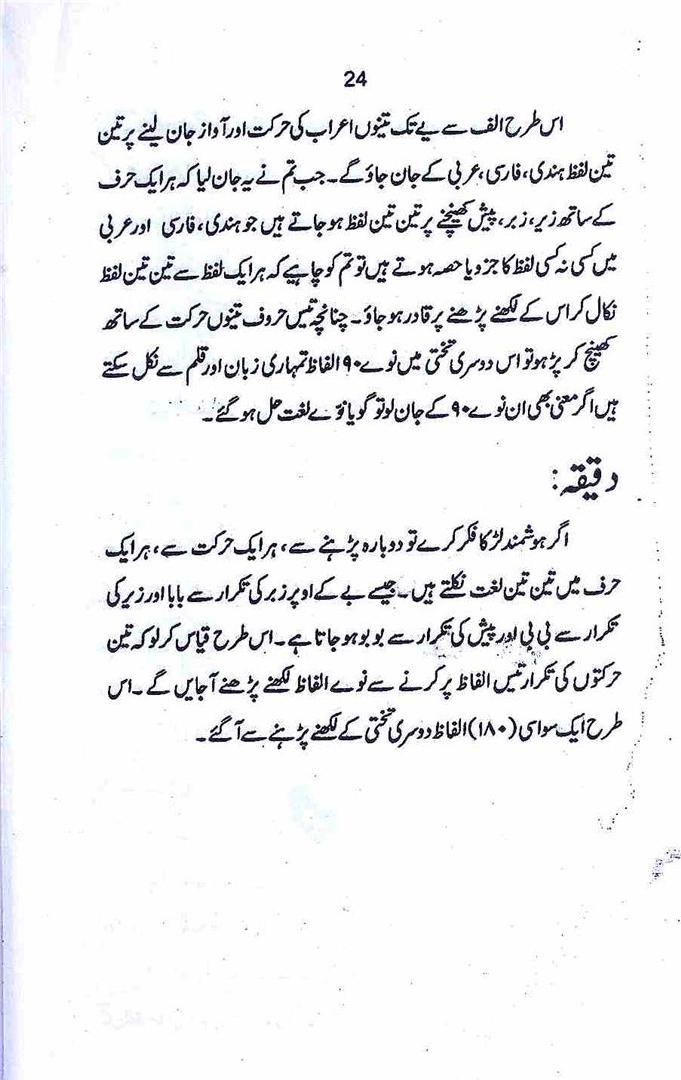 24
اس طرح الف سے یے تک تینوں اعراب کی حرکت اور آواز جان لینے پر تین
تین لفظ ہندی، فارسی، عربی کے جان جاؤ گے۔ جب تم نے یہ جان لیا کہ ہر ایک حرف
کے ساتھ زیر، زبر، پیش کھینچنے پر تین تین لفظ ہو جاتے ہیں جو ہندی، فارسی اور عربی
میں کسی نہ کسی لفظ کا جزو یا حصہ ہوتے ہیں تو تم کو چاہیے کہ ہر ایک لفظ سے تین تین لفظ
نکال کر اس کے لکھنے پڑھنے پر قادر ہو جاؤ۔ چنانچہ تیس حروف تینوں حرکت کے ساتھ
کھینچ کر پڑھو تو اس دوسری تختی میں نوے ۹۰ الفاظ تمہاری زبان اور قلم سے نکل سکتے
ہیں اگر معنی بھی ان نوے ۹۰ کے جان لو تو گویا نوّے لغت حل ہو گئے۔
دقیقہ:
اگر ہوشمند لڑکا فکر کرے تو دوبارہ پڑہنے سے، ہر ایک حرکت سے، ہر ایک
حرف میں تین تین لغت نکلتے ہیں۔ جیسے بے کے اوپر زبر کی تکرار سے بابا اور زیر کی
تکرار سے بی بی اور پیش کی تکرار سے بو بو ہو جاتا ہے۔ اس طرح قیاس کر لو کہ تین
حرکتوں کی تکرار تیس الفاظ پر کرنے سے نوے الفاظ لکھنے پڑھنے آ جایں گے۔ اس
طرح ایک سو اسی (۱۸۰) الفاظ دوسری تختی کے لکھنے پڑہنے سے آ گئے۔